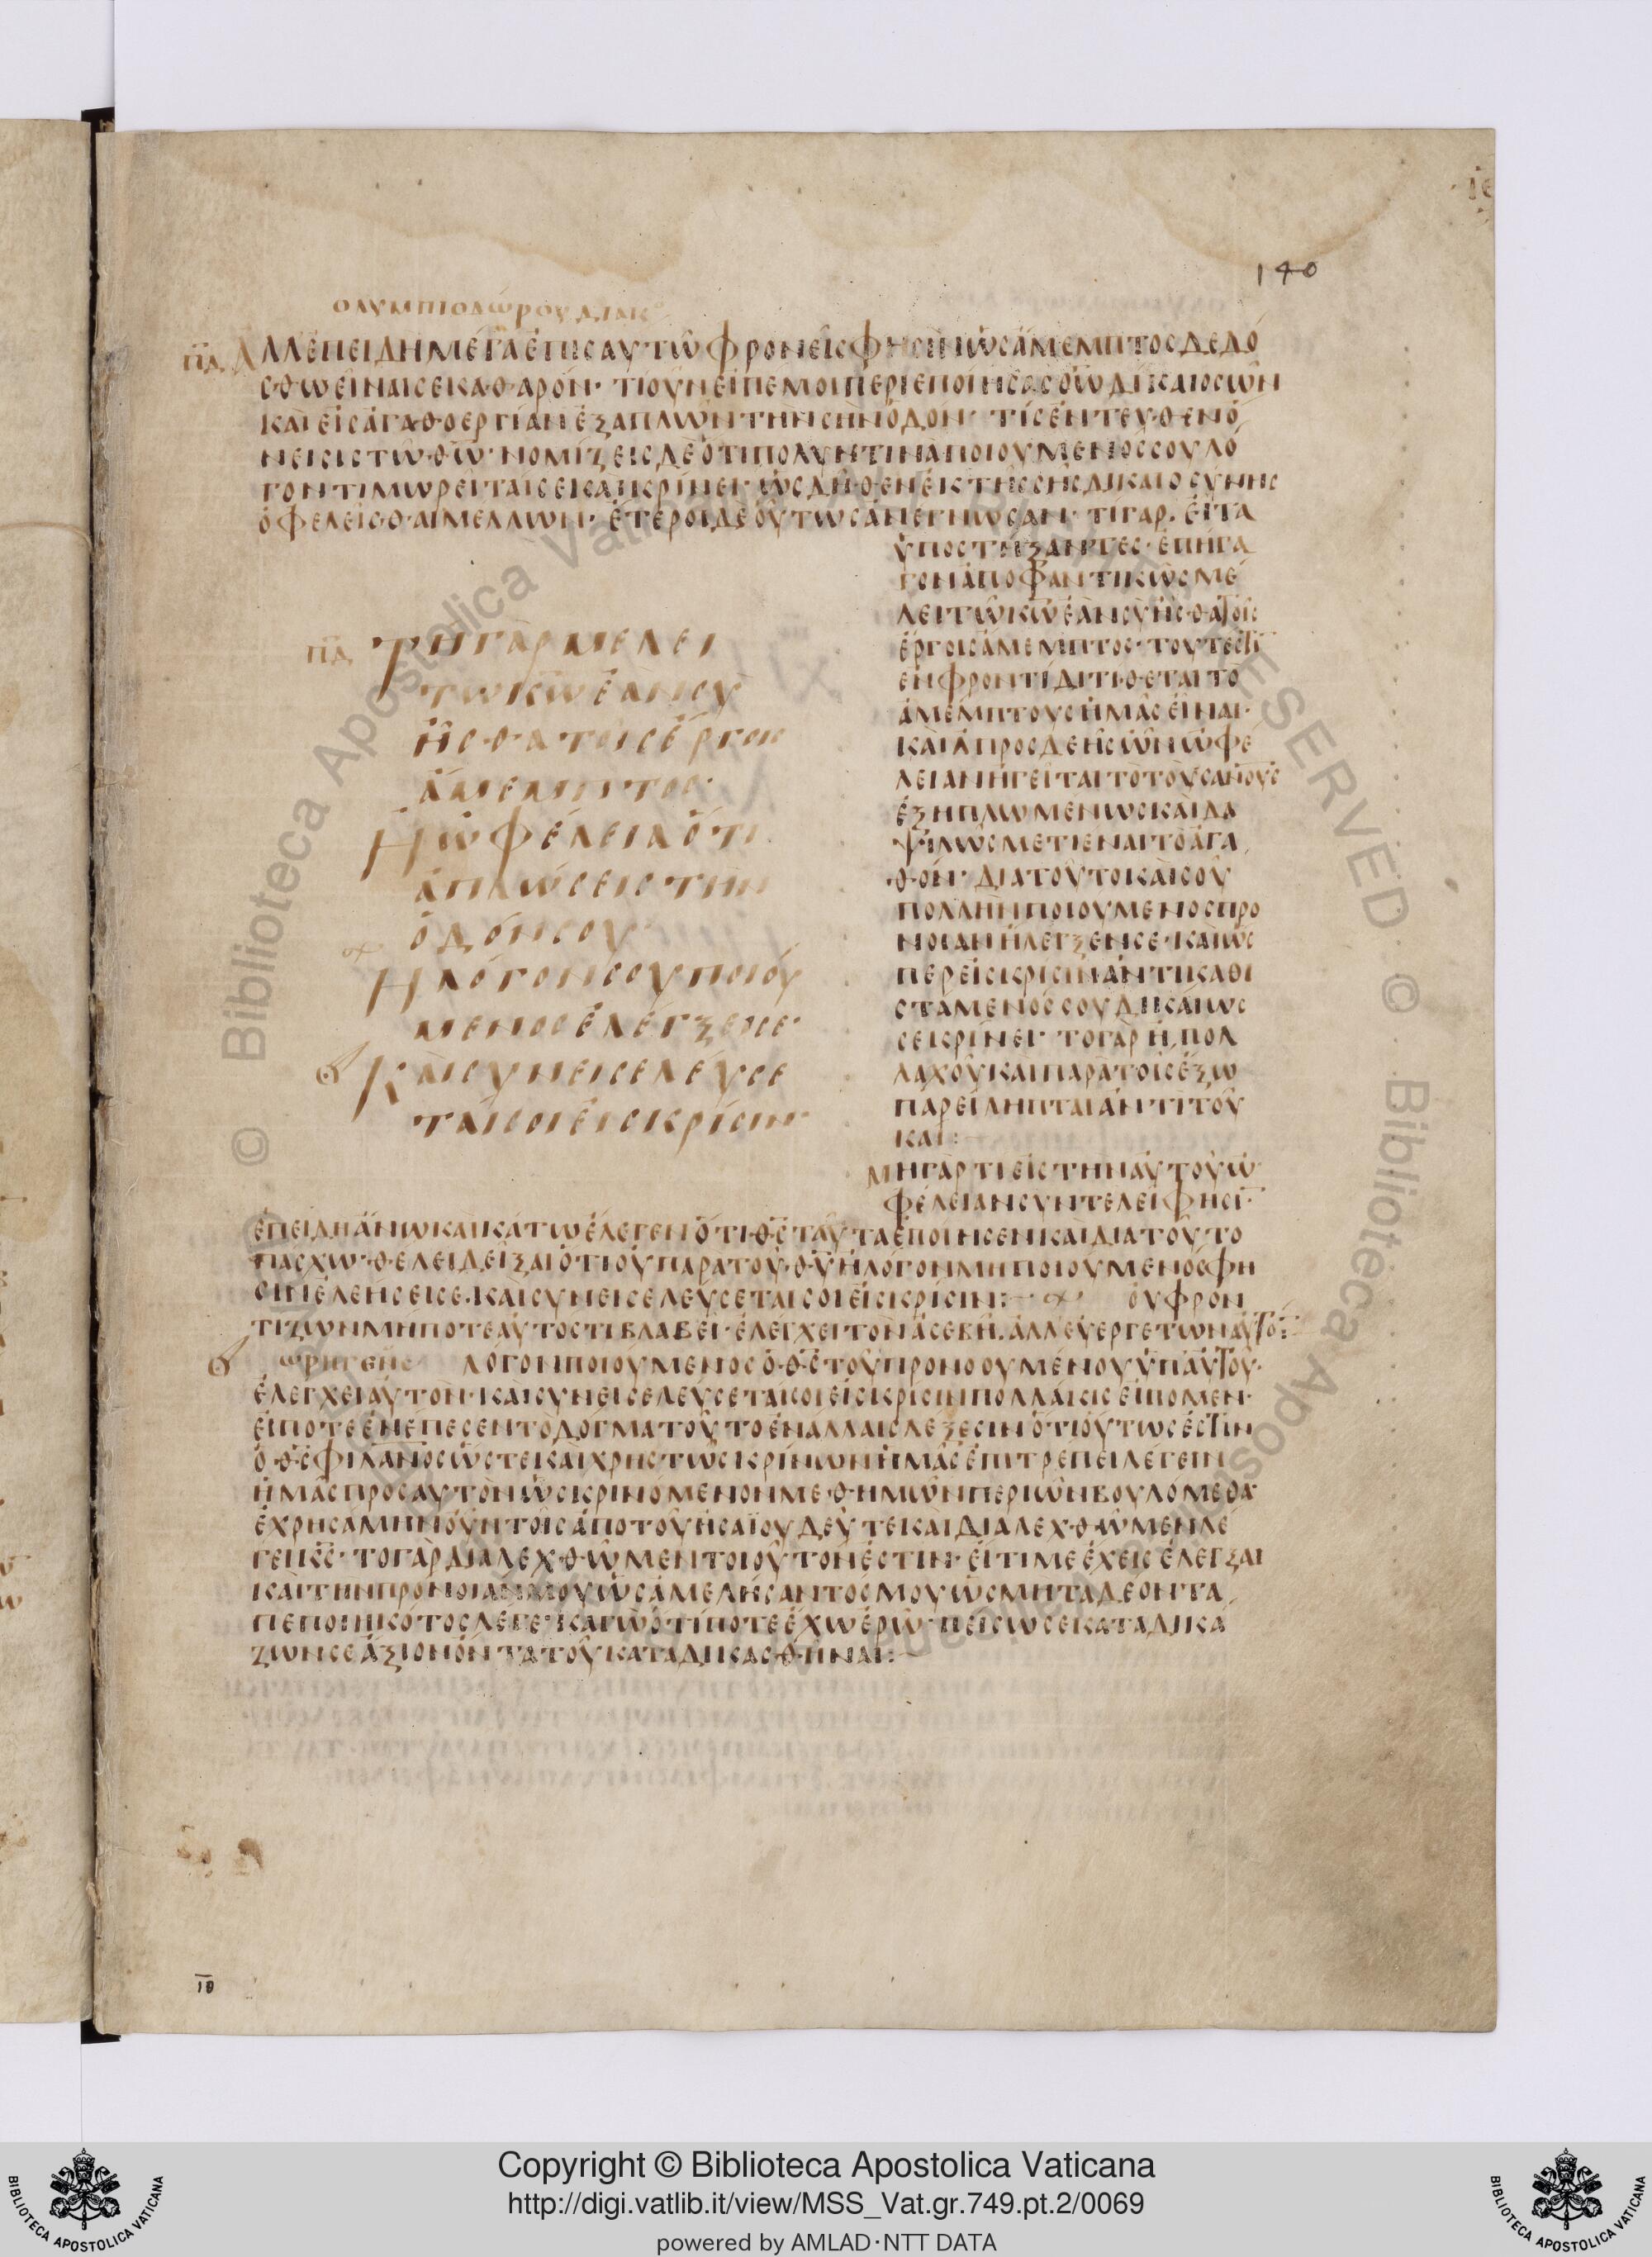 ΙΕ
140
ΟΛΥΜΠΙΟΔΩΡΟΥ ΔΙΑΚο
ΠΔ ΑΛΛ ἘΠΕΙΔΗ ΜΕΓΑ ἘΠΙ ΣΑΥΤΩ ΦΡΟΝΕΙΣ ΦΗΣΙΝ ὩΣ ἌΜΕΜΠΤΟΣ ΔΕΔΟ
ΣΘΩ ΕἾΝΑΙ ΣΕ ΚΑΘΑΡΟΝ· ΤΙ ΟΥΝ ΕἸΠΕ ΜΟΙ ΠΕΡΙΕΠΟΙΗΣΑΣ ΘΩ ΔΙΚΑΙΟΣ ΩΝ
ΚΑῚ ΕἸΣ ἈΓΑΘΟΕΡΓΙΑΝ ἘΞΑΠΛΩΝ ΤΗΝ ΣῊΝ ὉΔΟΝ· ΤΙΣ ἘΝΤΕΥΘΕΝ Ὄ
ΝΗΣΙΣ ΤΩ ΘΩ· ΝΟΜΙΖΕΙΣ ΔΕ ὍΤΙ ΠΟΛΥΝ ΤΙΝΑ ΠΟΙΟΥΜΕΝΟΣ ΣΟΥ ΛΟ
ΓΟΝ ΤΙΜΩΡΕΙΤΑΙ ΣΕ ΚΑΙ ΚΡΙΝΕΙ· ὩΣ ΔΗΘΕΝ ἘΚ ΤΗΣ ΣΗΣ ΔΙΚΑΙΟΣΥΝΗΣ
ὈΦΕΛΕΙΣΘΑΙ ΜΕΛΛΩΝ· ἝΤΕΡΟΙ ΔΕ ΟὝΤΩΣ ἈΝΕΓΝΩΣΑΝ· ΤΙ ΓΑΡ. ΕἾΤΑ
ὙΠΟΣΤΗΞΑΝΤΕΣ· ἘΠΗΓΑ
ΓΟΝ ἈΠΟΦΑΝΤΙΚΩΣ ΜΕ
ΛΕΙ ΤΩ ΚΩ ἘΑΝ ΣῪ ἮΣΘΑ ΤΟΙΣ
ἜΡΓΟΙΣ ἌΜΕΜΠΤΟΣ· ΤΟΥΤΕΣΤΙ
ἘΝ ΦΡΟΝΤΙΔΙ ΤΙΘΕΤΑΙ ΤΟ
ἈΜΕΜΠΤΟΥΣ ἩΜΑΣ ΕἾΝΑΙ·
ΚΑῚ ἈΠΡΟΣΔΕῊΣ ὬΝ ὨΦΕ
ΛΕΙΑΝ ἩΓΕΙΤΑΙ ΤῸ ΤΟῪΣ ἈΝΟΥΣ
ἘΞΗΠΛΩΜΕΝΩΣ ΚΑῚ ΔΑ
ΨΙΛΩΣ ΜΕΤΙΕΝΑΙ ΤΟ ἈΓΑ
ΘΟΝ· ΔΙΑ ΤΟΥΤΟ ΚΑῚ ΣΟΥ
ΠΟΛΛΗΝ ΠΟΙΟΥΜΕΝΟΣ ΠΡΟ
ΝΟΙΑΝ ἬΛΕΓΞΕΝ ΣΕ· ΚΑΙ ὩΣ
ΠΕΡ ΕἸΣ ΚΡΙΣΙΝ ἈΝΤΙΚΑΘΙ
ΣΤΑΜΕΝΟΣ ΣΟΥ ΔΙΚΑΙΩΣ
ΣΕ ΚΡΙΝΕΙ· ΤΟ ΓΑΡ Ἢ, ΠΟΛ
ΛΑΧΟΥ ΚΑΙ ΠΑΡΑ ΤΟΙΣ ἘΞΩ
ΠΑΡΕΙΛΗΠΤΑΙ ἈΝΤΙ ΤΟΥ
ΚΑΙ:
ΠΔ ΤΗ ΓΑΡ ΜΕΛΕΙ
ΤΩ ΚΩ ἘΑΝ ΣΥ
ἮΣΘΑ ΤΟΙΣ ἜΡΓΟΙΣ
ἌΜΕΜΠΤΟΣ·
Ἢ ὨΦΕΛΕΙΑ ὍΤΙ
ἉΠΛΩΣΕΙΣ ΤΗΝ
ὉΔΟΝ ΣΟΥ
Ἢ ΛΟΓΟΝ ΣΟΥ ΠΟΙΟΥ
ΜΕΝΟΣ ἘΛΕΓΞΕΙ ΣΕ·
ΚΑῚ ΣΥΝΕΙΣΕΛΕΥΣΕ
ΤΑΙ ΣΟΙ ΕἸΣ ΚΡΙΣΙΝ·
ΜΗ ΓΑΡ ΤΙ ΕἸΣ ΤΗΝ ΑΥΤΟΥ Ὠ
ΦΕΛΕΙΑΝ ΣΥΝΤΕΛΕΙ ΦΗΣΙ·
ἘΠΕΙΔΗ ἌΝΩ ΚΑῚ ΚΑΤΩ ἜΛΕΓΕΝ ὍΤΙ ΘΣ ΤΑΥΤΑ ἘΠΟΙΗΣΕΝ ΚΑΙ ΔΙΑ ΤΟΥΤΟ
ΠΑΣΧΩ· ΘΕΛΕΙ ΔΕΙΞΑΙ ὍΤΙ ΟΥ ΠΑΡΑ ΤΟΥ ΘΥ Ἢ ΛΟΓΟΝ ΜΗ ΠΟΙΟΥΜΕΝΟΣ ΦΗ
ΣΙΝ ἘΛΕΗΣΕΙ ΣΕ· ΚΑῚ ΣΥΝΕΙΣΕΛΕΥΣΕΤΑΙ ΣΟΙ ΕἸΣ ΚΡΙΣΙΝ: ΟΥ ΦΡΟΝ
ΤΙΖΩΝ ΜΗΠΟΤΕ ΑΥΤΟΣ ΤΙ ΒΛΑΒΕΙ· ἘΛΕΓΧΕΙ ΤΟΝ ἈΣΕΒΗ. ἈΛΛ ΕΥΕΡΓΕΤΩΝ ΑΥΤΟ:
ΩΡΙΓΕΝΗΣ ΛΟΓΟΝ ΠΟΙΟΥΜΕΝΟΣ Ὁ ΘΣ ΤΟΥ ΠΡΟΝΟΟΥΜΕΝΟΥ ὙΠ ΑΥΤΟΥ·
ἘΛΕΓΧΕΙ ΑΥΤΟΝ· ΚΑῚ ΣΥΝΕΙΣΕΛΕΥΣΕΤΑΙ ΣΟΙ ΕἸΣ ΚΡΙΣΙΝ ΠΟΛΛΑΚΙΣ ΕἸΠΟΜΕΝ·
ΕἸΠΟΤΕ ἘΝΕΠΕΣΕΝ ΤΟ ΔΟΓΜΑ ΤΟΥΤΟ ἘΝ ΑΛΛΑΙΣ ΛΕΞΕΣΙΝ ὍΤΙ ΟΥΤΩΣ ἘΣΤΙΝ
Ὁ ΘΣ ΦΙΛΑΝΟΣ ὩΣΤΕ ΚΑῚ ΧΡΗΣΤΩΣ ΚΡΙΝΩΝ ἩΜΑΣ ἘΠΙΤΡΕΠΕΙ ΛΕΓΕΙΝ
ἩΜΑΣ ΠΡΟΣ ΑΥΤΟΝ ὩΣ ΚΡΙΝΟΜΕΝΟΝ ΜΕΘ ΗΜΩΝ ΠΕΡΙ ὩΝ ΒΟΥΛΟΜΕΘΑ·
ἘΧΡΗΣΑΜΗΝ ΟΥΝ ΤΟΙΣ ἈΠΟ ΤΟΥ ἩΣΑΙΟΥ ΔΕΥΤΕ ΚΑΙ ΔΙΑΛΕΧΘΩΜΕΝ ΛΕ
ΓΕΙ ΚΣ· ΤΟ ΓΑΡ ΔΙΑΛΕΧΘΩΜΕΝ ΤΟΙΟΥΤΟΝ ἘΣΤΙΝ· ΕἸ ΤΙ ΜΕ ἘΧΕΙΣ ἘΛΕΓΞΑΙ
ΚΑῚ ΤΗΝ ΠΡΟΝΟΙΑΝ ΜΟΥ ὩΣ ἈΜΕΛΗΣΑΝΤΟΣ ΜΟΥ ὩΣ ΜΗ ΤΑ ΔΕΟΝΤΑ
ΠΕΠΟΙΗΚΟΤΟΣ ΛΕΓΕ· ΚΑΓΩ ὉΤΙΠΟΤΕ ἘΧΩ ἘΡΩ· ΠΕΙΣΩ ΣΕ ΚΑΤΑΔΙΚΑ
ΖΩΝ ΣΕ ἈΞΙΟΝ ὈΝΤΑ ΤΟΥ ΚΑΤΑΔΙΚΑΣΘΗΝΑΙ:
ΙΘ
© Biblioteca Apostolica Vaticana
Copyright © Biblioteca Apostolica Vaticana
http://digi.vatlib.it/view/MSS_Vat.gr.749.pt.2/0069
powered by AMLAD·NTT DATA
BIBLIOTECA APOSTOLICA VATICANA
BIBLIOTECA APOSTOLICA VATICANA